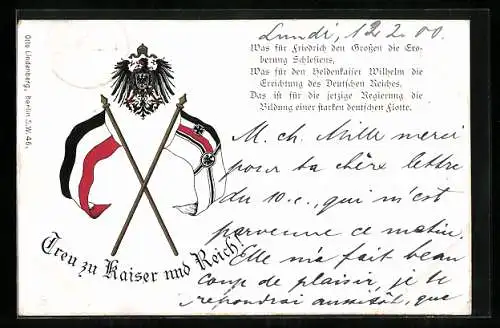 Lundi, 12 2.00.
Was für Friedrich den Großen die Ero-
berung Schlesiens,
Was für den Heldenkaiser Wilhelm die
Errichtung des Deutschen Reiches,
Das ist für die jetzige Regierung die
Bildung einer starken deutschen Flotte.
M. ch. Mille merci
pour ta chère lettre
du 10 c., qui m'est
parvenue ce matin.
Elle m'a fait beau
coup de plaisir, je te
repondrai aussitôt, que
Treu zu Kaiser und Reich!
Otto Lindenberg, Berlin S.W. 46.